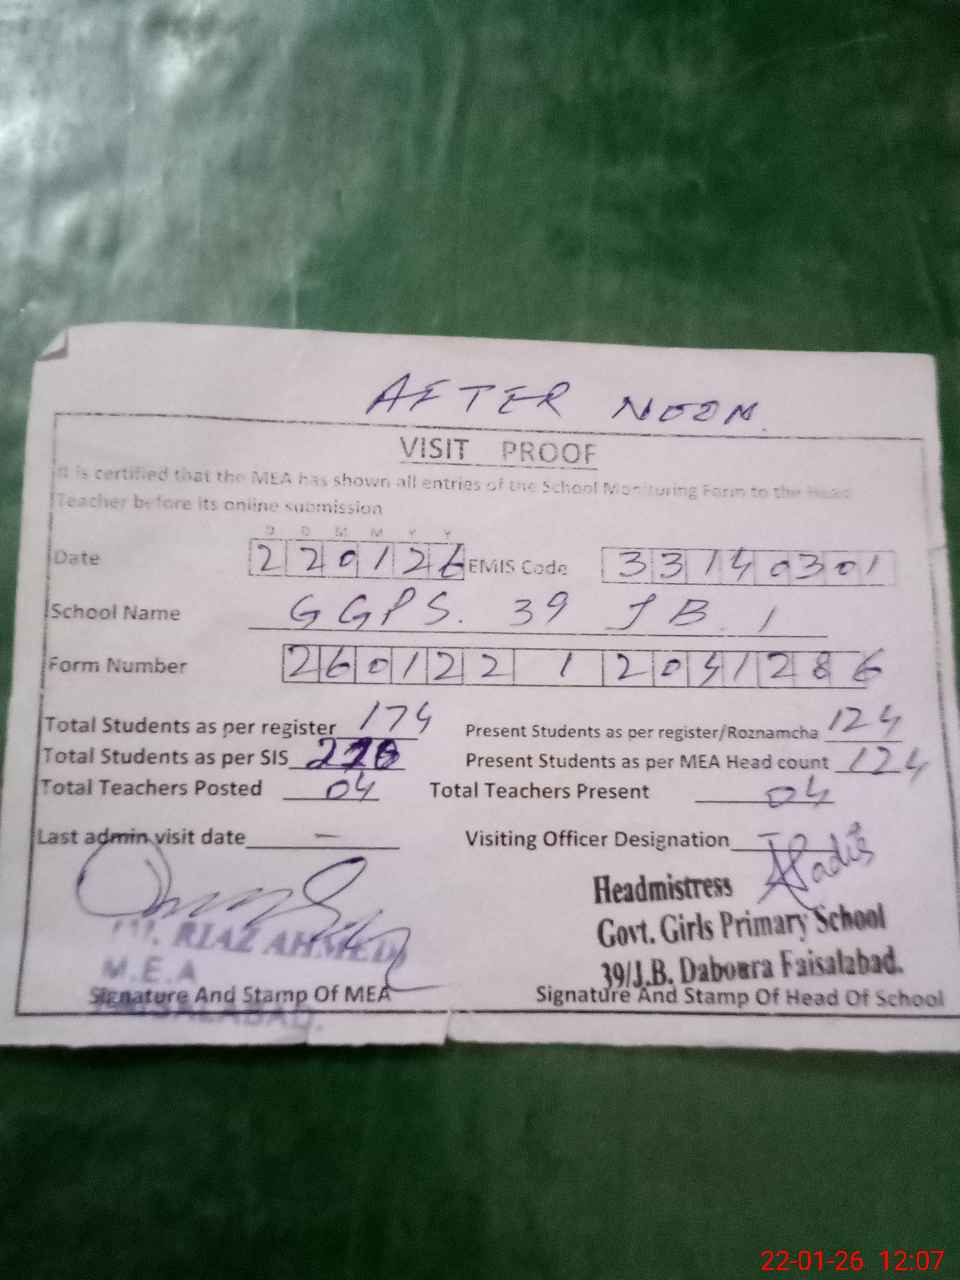 AFTER NOON.
VISIT PROOF
It is certified that the MEA has shown all entries of the School Monitoring Form to the Head
Teacher before its online submission
D D M M Y Y
Date 220126 EMIS Code 33140301
School Name GGPS. 39 JB. 1
Form Number 260122 1 2041286
Total Students as per register 174 Present Students as per register/Roznamcha 124
Total Students as per SIS Present Students as per MEA Head count 124
Total Teachers Posted 04 Total Teachers Present 04
Last admin visit date — Visiting Officer Designation
Headmistress
Govt. Girls Primary School
39/J.B. Daboura Faisalabad.
RIAZ AHMED
M.E.A
FAISALABAD.
Signature And Stamp Of MEA Signature And Stamp Of Head Of School
22-01-26 12:07